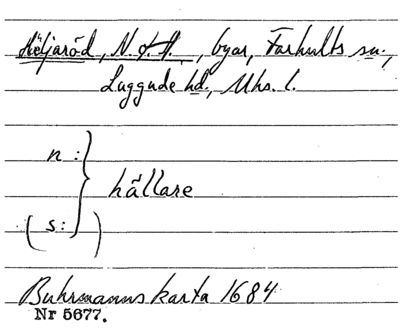 Höljaröd, N. & S., byar, Farhults sn.,
Luggude hd., Mhs. l.
n:
hållare
(s:)
Buhrmanns karta 1684
Nr 5677.